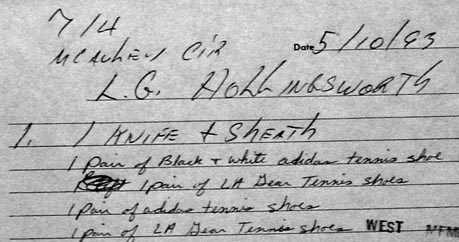 7/4
Date 5/10/93
McAuley Cir
L.G. Hollingsworth
1. 1 Knife + Sheath
1 pair of Black + white adidas tennis shoe
1 pair of LA Gear Tennis shoes
1 pair of adidas tennis shoes
1 pair of LA Gear Tennis shoes WEST MEM